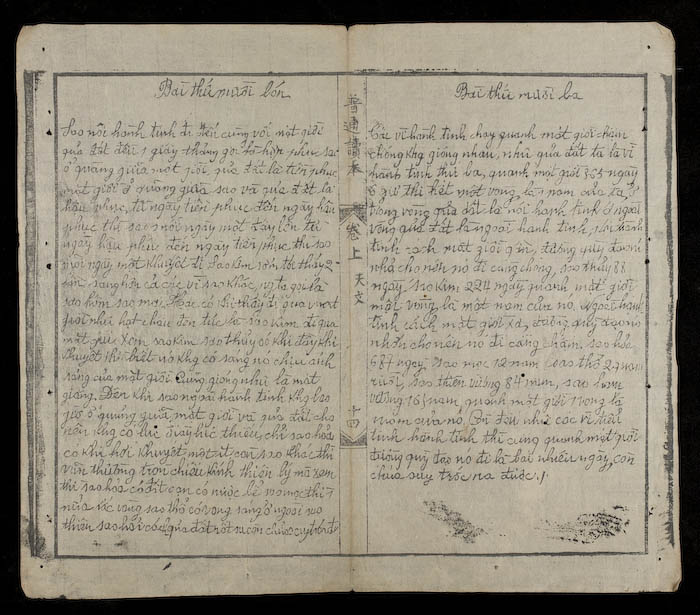 Bài thứ mười ba
Các vì hành tinh chạy quanh mặt giời chậm
chóng khg giống nhau, như quả đất ta là vì
hành tinh thứ ba, quanh mặt giời 365 ngày
6 giờ thì hết một vòng là 1 năm của ta, ở
trong vòng quả đất là nội hành tinh ở ngoài
vòng quả đất là ngoài hành tinh, nội hành
tinh cách mặt giời gần, đường quỹ đạo nó
nhỏ cho nên nó đi càng chóng, sao thủy 88
ngày sao kim 224 ngày quanh mặt giời
một vòng là một năm của nó, Ngoại hành
tinh cách mặt giời xa, đường quỹ đạo nó
nhớn cho nên nó đi càng chậm, sao hỏa
687 ngày sao mọc 12 năm sao thổ 29 năm
ruỡi, sao thiên vương 84 năm, sao
vương 165 năm, quanh mặt giời 1 vòng là
năm của nó, Còn đều như các vì tiểu
tinh hành tinh thì cũng quanh mặt giời
đường quỹ đạo nó đi là bai nhiêu ngày, còn
chưa suy trốc ra được./
普通讀本
卷上 天文
十四
Bài thứ mười bốn
Sao nội hành tinh đi đến cùng với mặt giời
quả đất đều 1 giây thẳng gọi là hợp phục sao
ở quãng giữa mặt giời, quả đất là tiền phục
mặt giời ở quãng giữa sao và quả đất là
hậu phục, từ ngày tiền phục đến ngày hậu
phục thì sao mỗi ngày một đầy lên từ
ngày hậu phục đến ngày tiền phục thì sao
mỗi ngày một khuyết đi sao kim sớm tối thấy 2
lần sáng hơn cả các vì sao khác, ng ta gọi là
sao hôm sao mai, Hoặc có khi thấy đi qua mặt
giời như hạt châu đen tức là sao kim đi qua
mặt giời xem sao kim sao thủy có khi đầy khi
khuyết thì biết nó khg có sáng nó chịu ánh
sáng của mặt giời Cũng giống như là mặt
giăng. Đến khi sao ngoại hành tinh khg bao
giờ ở quãng giữa mặt giời và quả đất cho
nên khg có lúc đầy lúc thiếu, chỉ sao hỏa
có khi hơi khuyết một ít còn sao khác thì
vẫn thường tròn chiếu kính thiên lý mà xem
thì sao hỏa có đất cạn có nước bể sao mọc thì
nửa tốc vòng sao thổ có vòng sáng ở ngoài sao